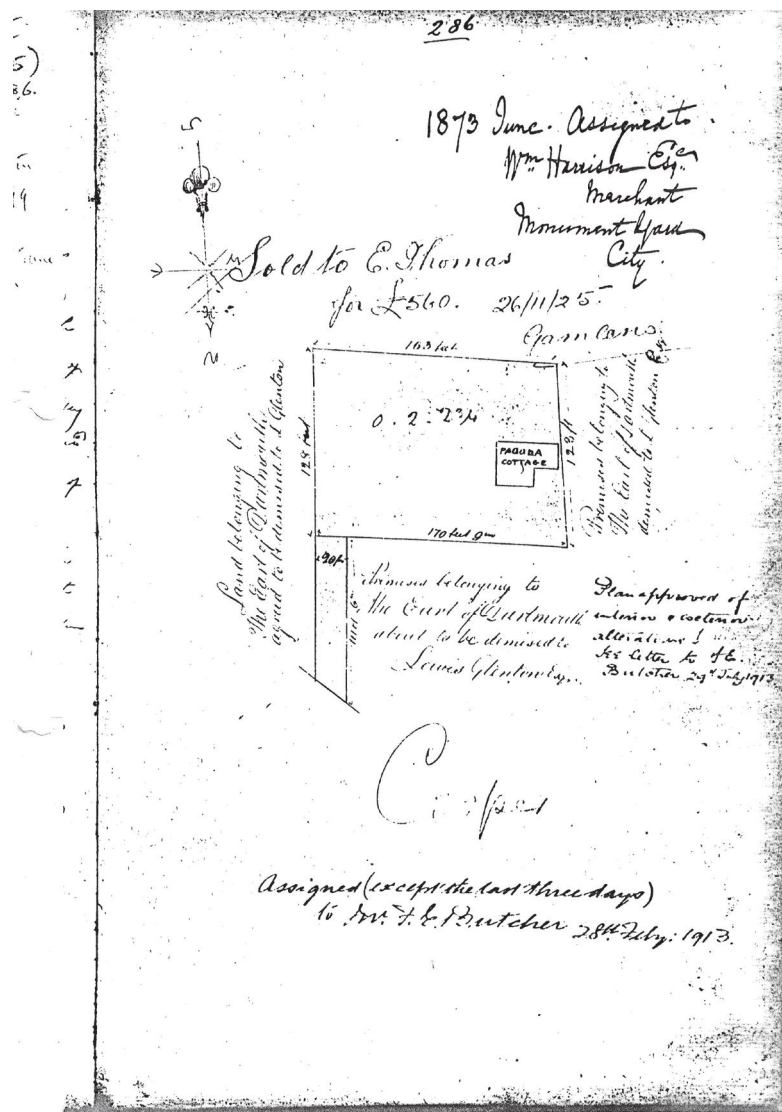 286
1873 June. Assigned to
Wm Harrison Esqre
Merchant
Monument Yard
City.
Sold to E. Thomas
for £560. 26/11/25.
S
N
163 feet
0. 2.
128 feet
128 ft
PAGODA
COTTAGE
170 feet 9 in
20 ft
Land belonging to
The Earl of Dartmouth
agreed to be demised to L Glenton
Premises belonging to
The Earl of Dartmouth
demised to L Glenton Esq
Premises belonging to
The Earl of Dartmouth
about to be demised to
Lewis Glenton Esq.
Plan approved of
interior & exterior
alterations
see letter to F.E.
Butcher 29th July 1913
Cooper
Assigned (except the last three days)
to Mr. F. E. Butcher 28th Feby: 1913.